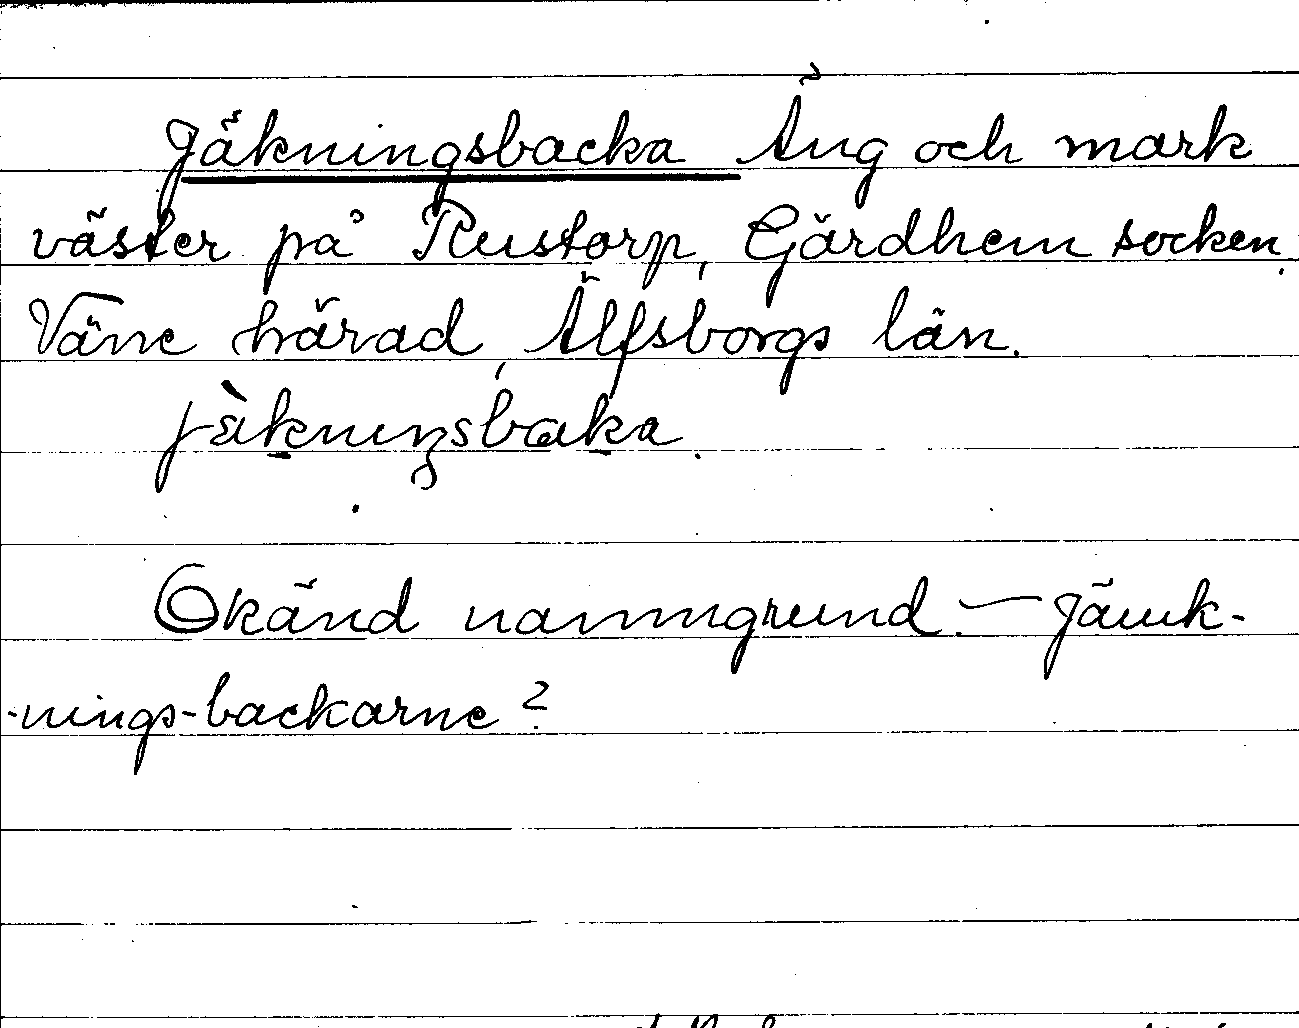 Jäkningsbacka Äng och mark
väster på Rustorp, Gärdhem socken,
Väne härad, Älfsborgs län.
jä̀kniŋsbaka.
Okänd namngrund. — Jämk-
-nings-backarne?